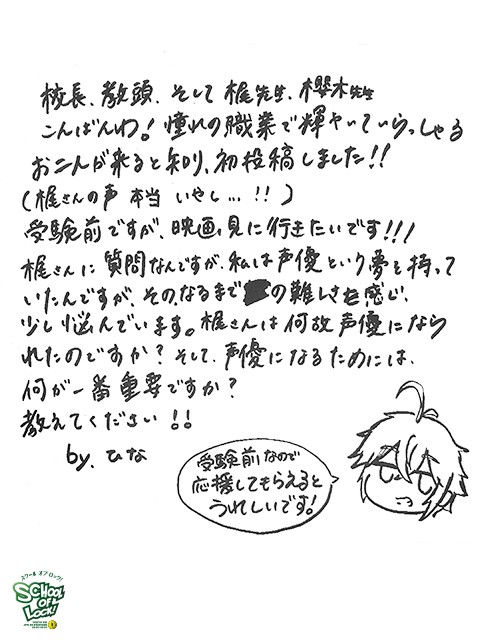 校長、教頭、そして梶先生、櫻木先生
こんばんわ!憧れの職業で輝やいていらっしゃる
お二人が来ると知り、初投稿しました!!
(梶さんの声 本当 いやし…!!)
受験前ですが、映画見に行きたいです!!!
梶さんに質問なんですが、私は声優という夢を持って
いたんですが、その、なるまでの難しさを感じ、
少し悩んでいます。梶さんは何故声優になら
れたのですか?そして、声優になるためには、
何が一番重要ですか?
教えてください!!
by. ひな
受験前なので
応援してもらえると
うれしいです!
スクール オブ ロック!
SCHOOL
OF
LOCK!